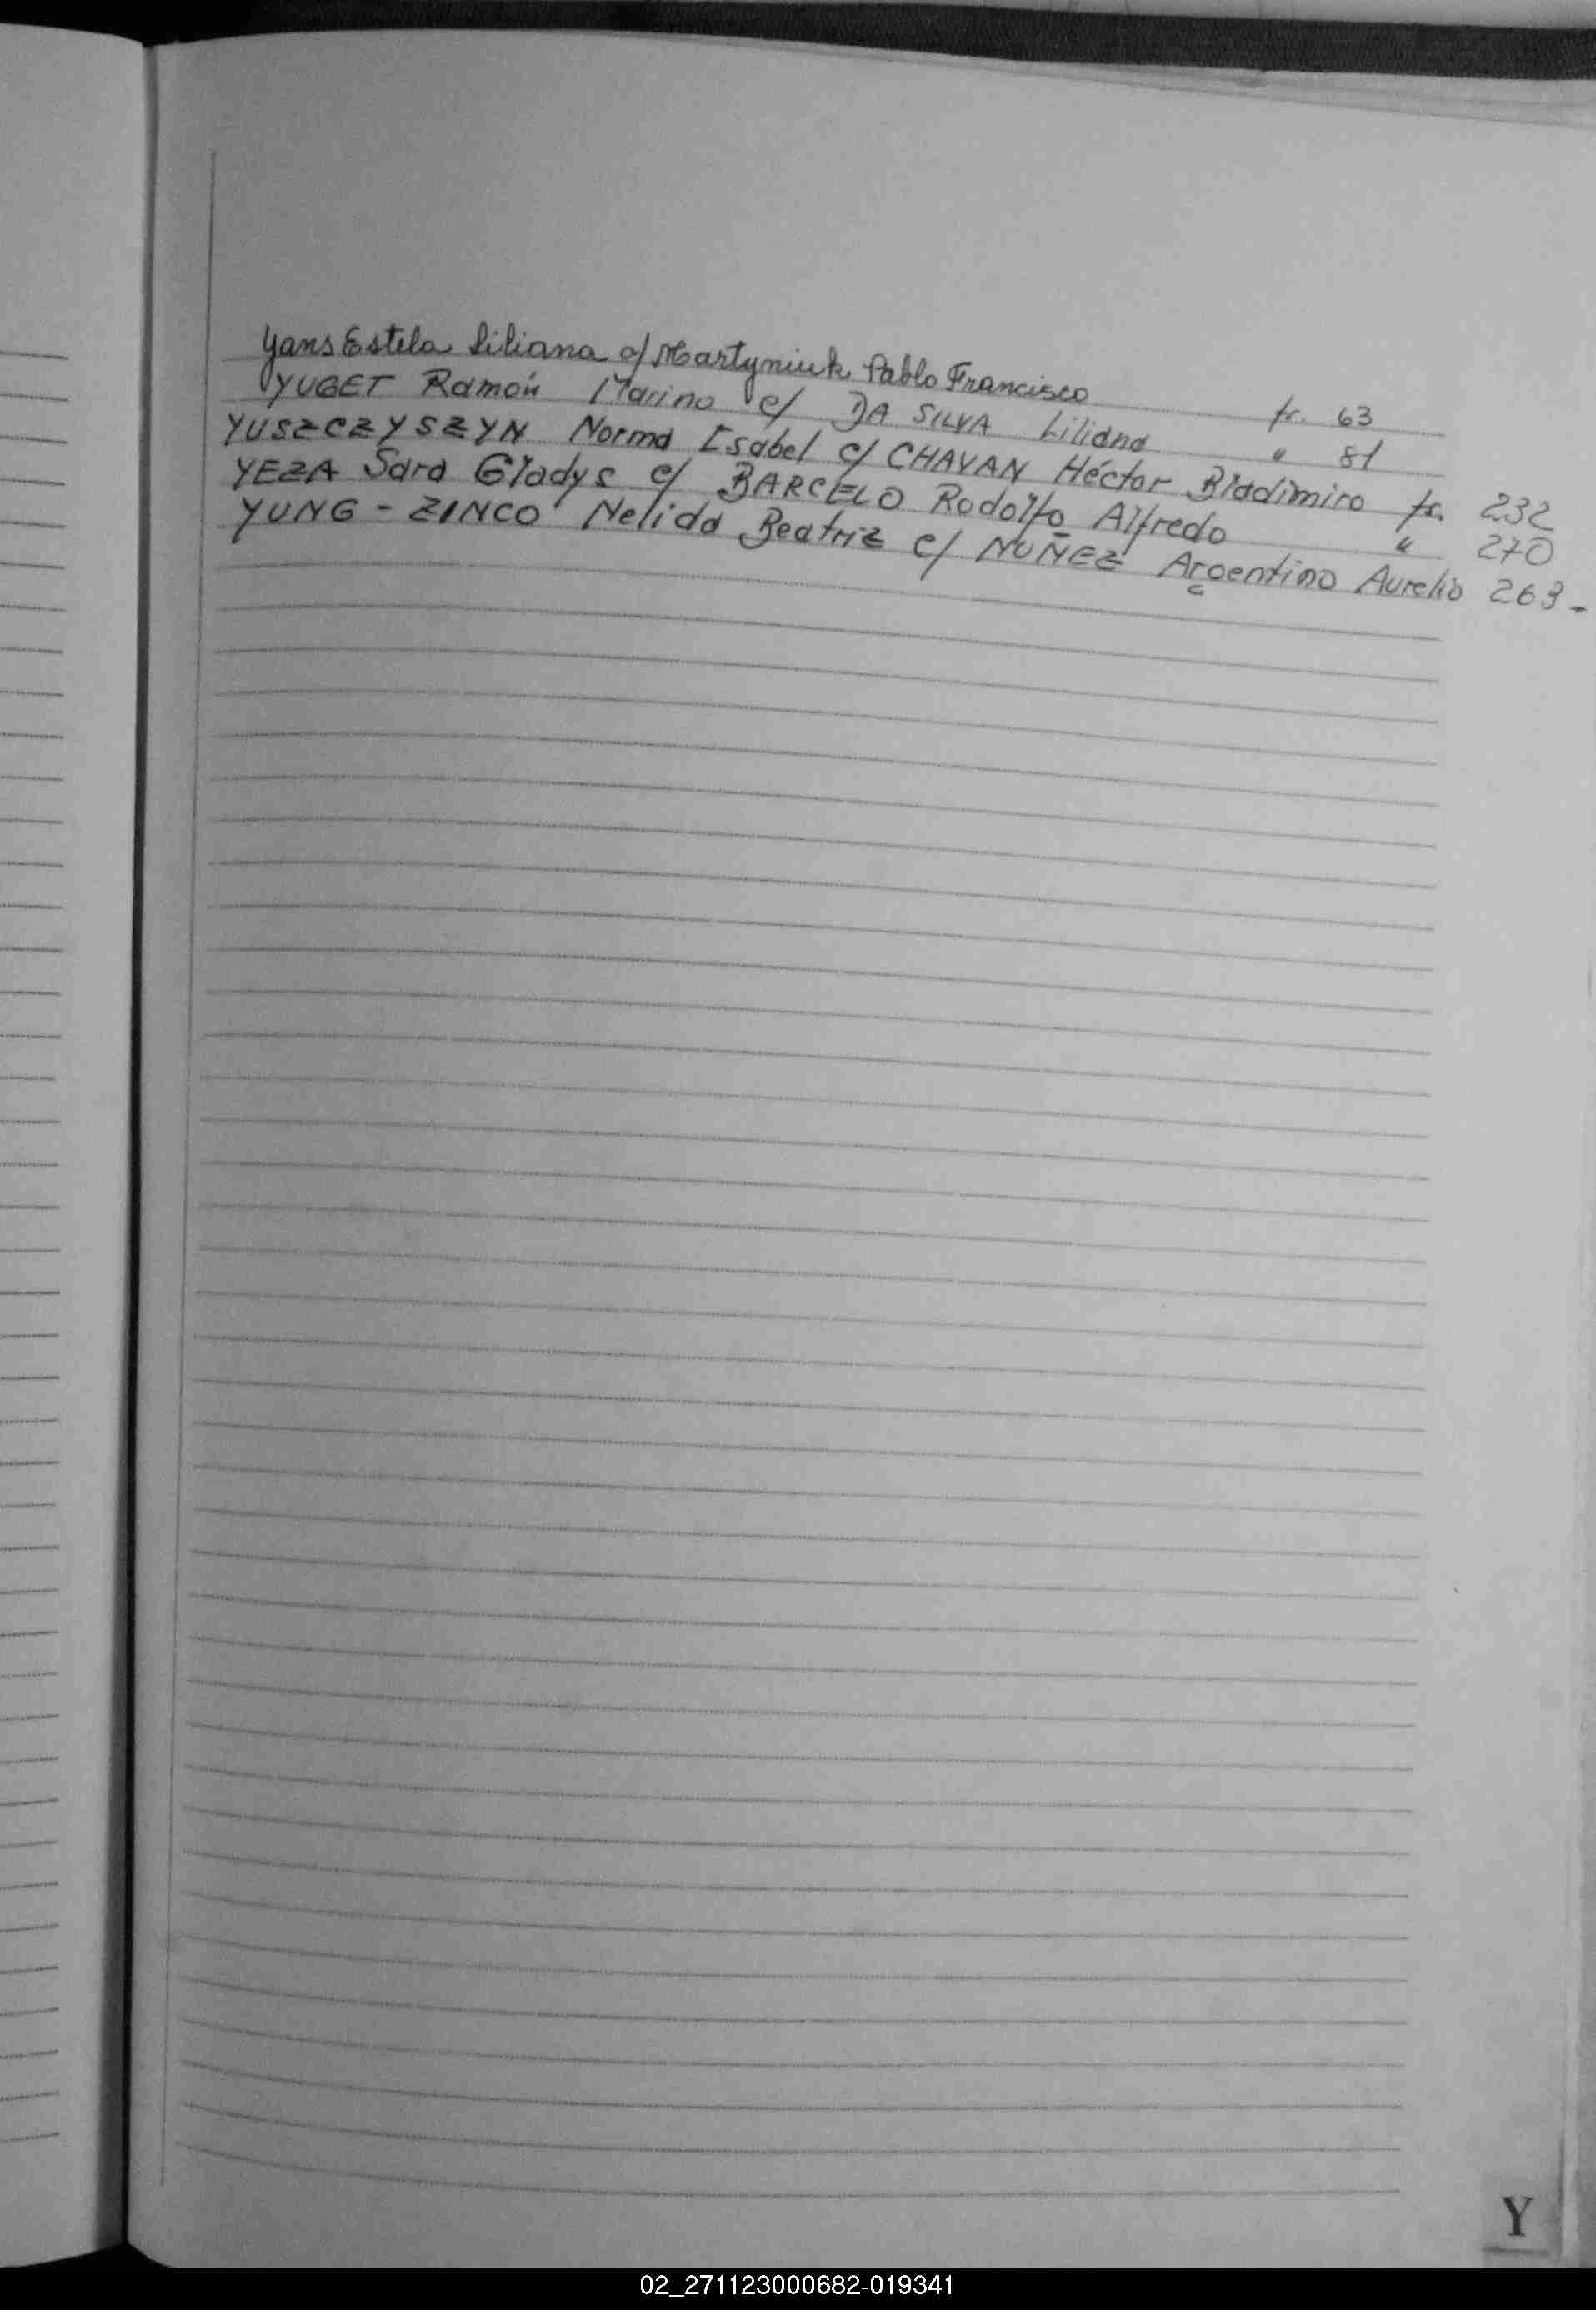 Yans Estela Liliana c/ Martyniuk Pablo Francisco fs. 63
YUGET Ramón Marino c/ DA SILVA Liliana " 81
YUSZCZYSZYN Norma Isabel c/ CHAVAN Héctor Bladimiro fs. 232
YEZA Sara Gladys c/ BARCELO Rodolfo Alfredo " 270
YUNG - ZINCO Nelida Beatriz c/ NUÑEZ Argentino Aurelio 263-
Y
02_271123000682-019341